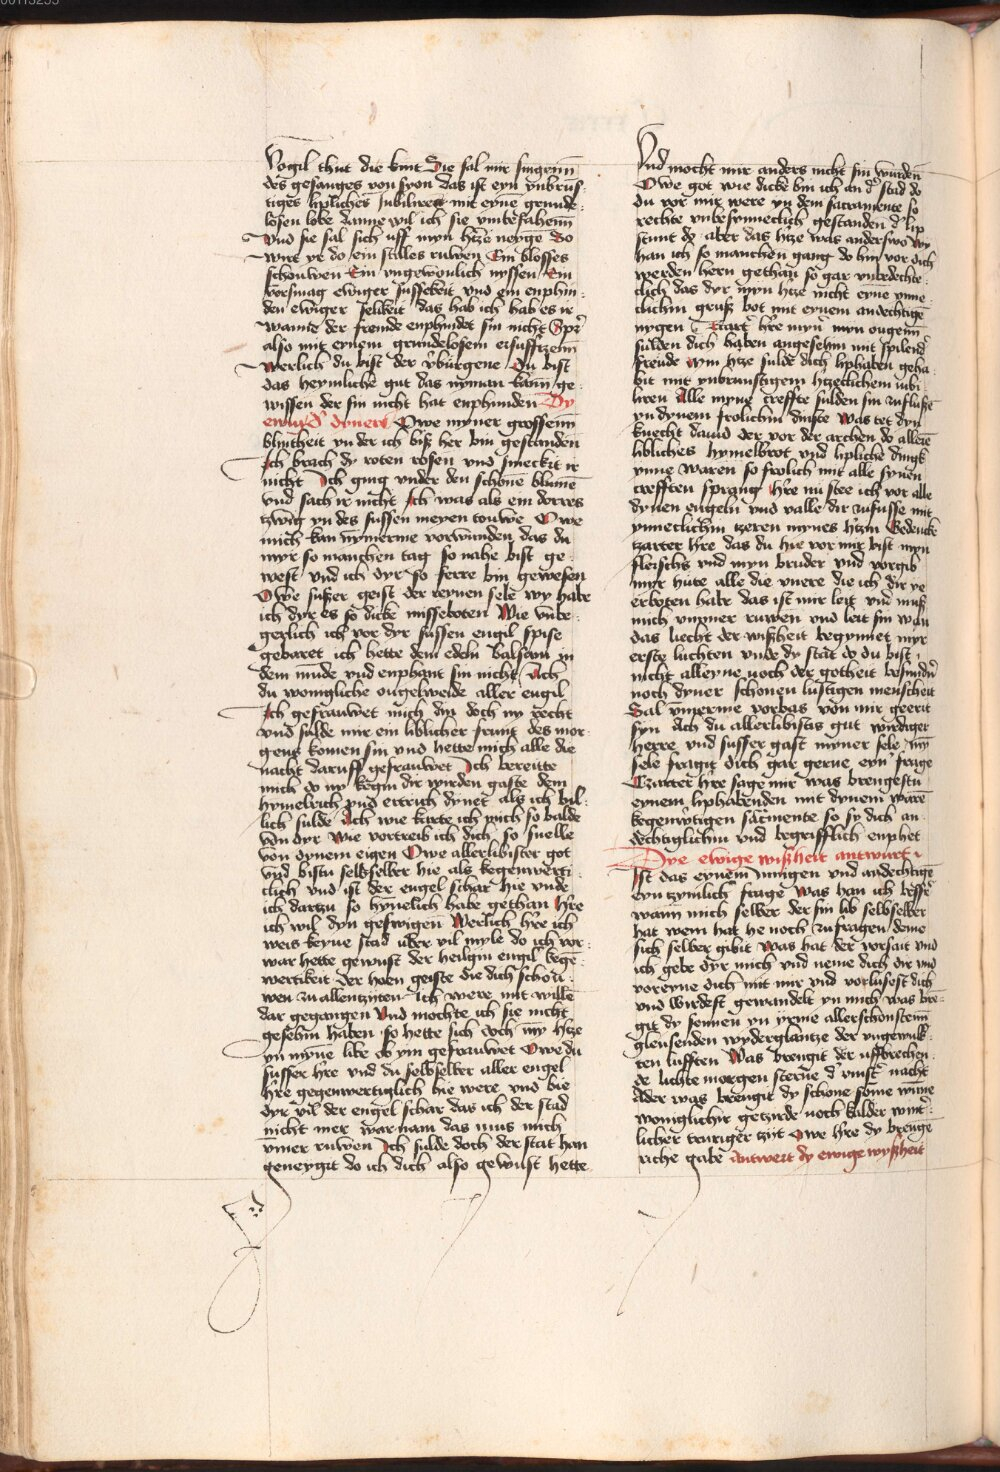 Vogil thut die kint Sie sal mir singenn
des gesanges von syon das ist eyn ynbruns
tiges liplichen jubiliren mit eyme grunde
losen lobe danne wil ich sie vmbefahenn
Vnd sie sal sich uff myn hͨze neyge So
wirt yr do ein stilles ruwen Ein blosses
schouwen Ein vngewonlich nyssen Ein
vorsmag ewiger sussekeit vnd ein enphin
den ewiger selikeit das hab ich hab es ir
wanne der freude enphindet sin nicht Spr̃
also mit eynem grundelosem ersufftzenn
Werlich du bist der v̾burgene Du bist
das heymliche gut das nyman kann ge
wissen der sin nicht hat enphunden Dy
ewige dynerĩ Owe myner grossenn
blintheit yn der ich biß her bin gestanden
Ich brach dy roten rosen vnd smeckit ir
nicht Ich ging vnder den schone blumē
vnd sach ir nicht Ich was als ein dorres
zwig yn des sussen meyen touwe Owe
mich kan nymerme vorwunden das du
myr so manchen tag so nahe bist ge
west vnd ich dyr so ferre bin gewesen
Owe susser geist der reynen sele wy habe
ich dyr es so dicke misseboten Wie vnbe
gerlich ich vor dyr sussen engil spise
gebaret ich hette dem edeln balsam in
dem munde vnd enphant sin nicht Ach
du wonigliche ougelweide aller engil
Ich gefrauwet mich din doch ny recht
vnd sulde mir ein liblicher frunt des mor
gens komen sin vnd hette mich alle die
nacht daruff gefrauwet Ich bereitte
mich do ny kegin dir wirden gaste dem
hymelrich vnd ertrich dynet als ich bil
lich sulde Ach wie karte ich mich so balde
von dyr Wie vortreib ich dich so snelle
von dynem eigen Owe allerlibister got
vnd bistu selbselber hie als kegenwerti
clich vnd ist der engel schar hie vnde
ich dartzu so hynelich habe gethan hr̃e
ich wil dyn geswigen Werlich hr̃e ich
weis keyne stad uber vil myle do ich vor
war hette gewust der heilgin engil kege
wertikeit der hoen geiste die dich schou
wen zu allentzyten ich were mit willē
dar gegangen Vnd mochte ich sie nicht
gesehin haben so hette sich doch myn hͨze
yn myne libe ob yin gefrauwet Owe du
susser hr̃e vnd du selbselber aller engel
hr̃e gegenwertiglich hie were vnd hie
dyr vil der engel schar das ich der stad
nicht mer war nam das mus mich
vmer ruwen Ich sulde doch der stat han
geneygit do ich dich also gewust hette
Vnd mocht mir anders nicht sin wurden
Owe got wie dicke bin ich an d̾ stad do
du vor mir were yn dem sacramente so
rechte vnbesynneclich gestanden d̾ lip
stunt do aber das hͨze was anderswo Wy
han ich so manchen gang do hin vor dich
werden hern gethan so gar vnbedechte
clich das dyr myn hͨze nicht eyne ynne
clichin gruß bot mit eynem andechtige
nygen Czart̾ hr̃e myn myn ougenn
sulden dich haben angesehin mit spilend̾
freude Myn hͨze sulde dich liphaben geha
bit mit ynbrunstigem hͨzeclichem iubi
liren Alle myne creffte sulden sin zuflussē
yn dynem frolichin dinste Was tet dyn
knecht dauid der vor der archen do allein
libliches hymelbrot vnd lipliche dingk
ynne waren so frolich mit alle synen
crefften sprang hr̃e nu stee ich vor alle
dynen engeln vnd valle dir zufusse mit
ynneclichin tzeren mynes hͨzin Gedencke
tzarter hr̃e das du hie vor mir bist myn
fleischs vnd myn bruder vnd vorgib
myr hute alle die vnere die ich dir ye
erboten habe das ist mir leit vnd muß
mich vmmer ruwen vnd leit sin wan
das liecht der wißheit begynnet myr
erste luchten vnde dy stat do du bist
nicht alleyne noch der gotheit besundn̾
noch dyner schonen lustigen menscheit
Sal vmerme vorbas von mir geerit
syn Ach du allerlibistes gut wirdiger
herre vnd susser gast myner sele my
sele fragit dich gar gerne eyn frage
Czarter hr̃e sage mir was brengestu
eynem liphabenden mit dynem ware
kegenwtigen sacmente so sy dich an
dechtiglichin vnd begrifflich enphet
Dye ewige wißheit antwurt
Ist das eynem mnigen vnd andechtigē
eyn tzymlich frage Was han ich besser̾
wann mich selber der sin lib selbselber
hat wem hat he noch zufragen deme
sich selber gibit Was hat der vorsait vnd
ich gebe dyr mich vnd neme dich dir vnd
voreyne dich mit mir vnd vorlusest dich
vnd wirdest gewandelt yn mich was bre
git dy sonnen yn yrme allerschonstenn
glensenden wyderglantze der vngewulk
ten lufften Was brengit der uffbrechen
de lichte morgen sterne d̾ vinst̾ nacht
Ader was brengit dy schone sonne wūne
woniglichir getzirde noch kalder wint̾
licher truriger tzijt Owe hr̃e dy brenge
riche gabe Antwert dy ewige wyßheit